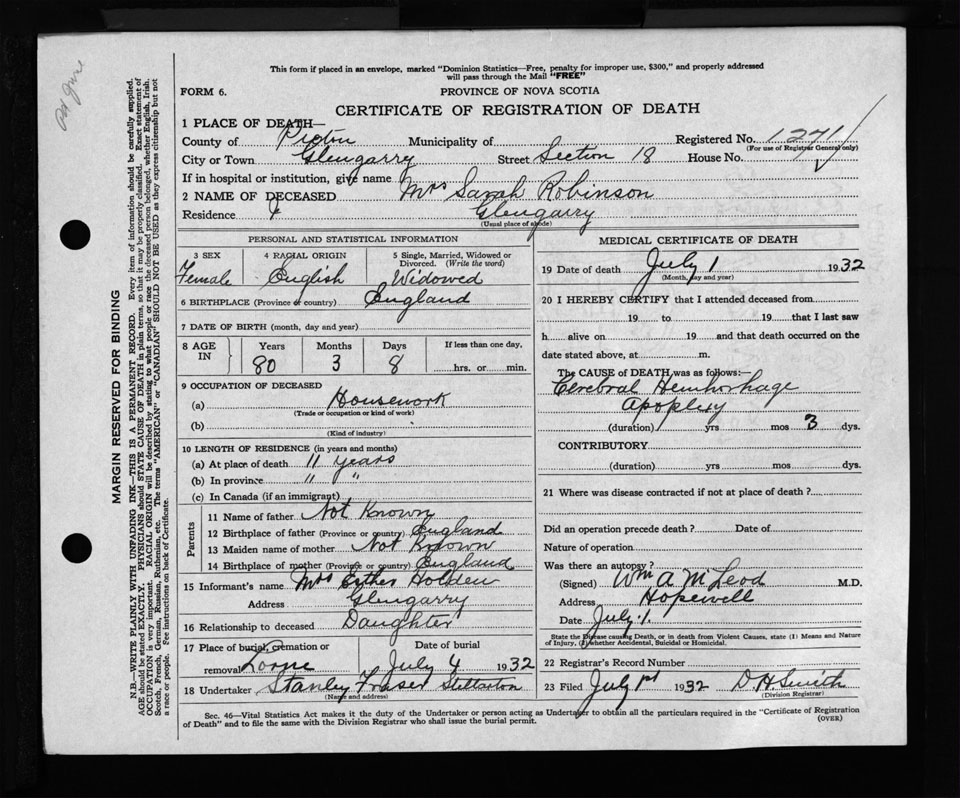 This form if placed in an envelope, marked "Dominion Statistics—Free, penalty for improper use, $300," and properly addressed
will pass through the Mail "FREE"
FORM 6.
PROVINCE OF NOVA SCOTIA
CERTIFICATE OF REGISTRATION OF DEATH
1 PLACE OF DEATH—
County of Pictou Municipality of Registered No. 1271
(For use of Registrar General only)
City or Town Glengarry Street Section 18 House No.
If in hospital or institution, give name
2 NAME OF DECEASED Mrs Sarah Robinson
Residence Glengarry
(Usual place of abode)
PERSONAL AND STATISTICAL INFORMATION
3 SEX 4 RACIAL ORIGIN 5 Single, Married, Widowed or
Divorced. (Write the word)
Female English Widowed
6 BIRTHPLACE (Province or country) England
7 DATE OF BIRTH (month, day and year)
8 AGE IN Years Months Days If less than one day,
80 3 8 hrs. or min.
9 OCCUPATION OF DECEASED
(a) Housework
(Trade or occupation or kind of work)
(b)
(Kind of industry)
10 LENGTH OF RESIDENCE (in years and months)
(a) At place of death 11 years
(b) In province " "
(c) In Canada (if an immigrant)
Parents
11 Name of father Not Known
12 Birthplace of father (Province or country) England
13 Maiden name of mother Not Known
14 Birthplace of mother (Province or country) England
15 Informant's name Mrs Esther Holden
Address Glengarry
16 Relationship to deceased Daughter
17 Place of burial, cremation or Date of burial
removal Lorne July 4 1932
18 Undertaker Stanley Fraser Stellarton
(Name and address)
MEDICAL CERTIFICATE OF DEATH
19 Date of death July 1 1932
(Month, day and year)
20 I HEREBY CERTIFY that I attended deceased from
19 to 19 that I last saw
h alive on 19 and that death occurred on the
date stated above, at m.
The CAUSE of DEATH was as follows:—
Cerebral Hemhorhage
Apoplexy
(duration) yrs mos 3 dys.
CONTRIBUTORY
(duration) yrs mos dys.
21 Where was disease contracted if not at place of death?
Did an operation precede death? Date of
Nature of operation
Was there an autopsy?
(Signed) Wm A McLeod M.D.
Address Hopewell
Date July 1.
State the Disease causing Death, or in death from Violent Causes, state (1) Means and Nature
of Injury, (2) whether Accidental, Suicidal or Homicidal.
22 Registrar's Record Number
23 Filed July 1st 1932 D. H. Smith
(Division Registrar)
Sec. 46—Vital Statistics Act makes it the duty of the Undertaker or person acting as Undertaker to obtain all the particulars required in the "Certificate of Registration
of Death" and to file the same with the Division Registrar who shall issue the burial permit.
(OVER)
MARGIN RESERVED FOR BINDING
N.B.—WRITE PLAINLY WITH UNFADING INK—THIS IS A PERMANENT RECORD. Every item of information should be carefully supplied.
AGE should be stated EXACTLY. PHYSICIANS should STATE CAUSE OF DEATH in plain terms, so that it may be properly classified. Exact statement of
OCCUPATION is very important. RACIAL ORIGIN will be described by stating to what people or race the deceased person belonged, whether English, Irish,
Scotch, French, German, Russian, Ruthenian, etc. The terms "AMERICAN" or "CANADIAN" SHOULD NOT BE USED as they express citizenship but not
a race or people. See instructions on back of Certificate.